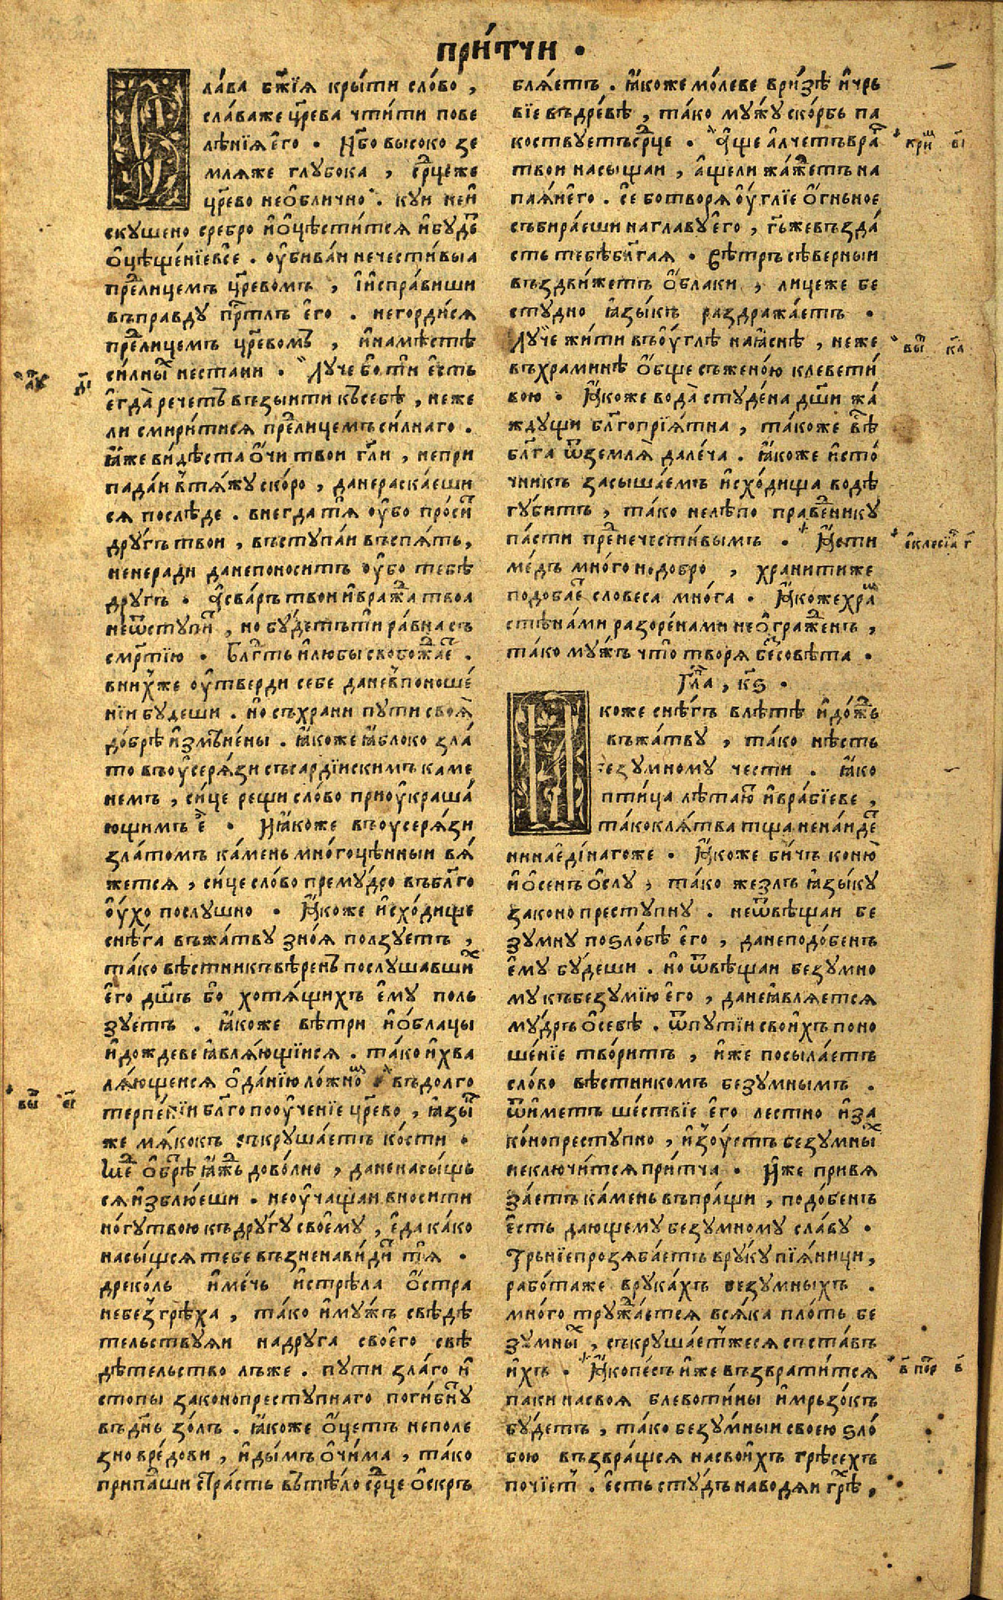 при́тчи .
ла́ва бж҃їѧ кры́ти сло́во ,
сла́ва же цр҃ева чти́ти пове
лѣ́нїѧ є҆го̀ . Нб҃о высоко зе
млѧ́же глубока , ср҃цеже
цр҃ево необли́чно . куи неи҆
скушено сребро и҆ ѡ҆цѣсти́тсѧ и҆ бу́дє
ѡ҆цѣще́нїе все . оу҆бива́и нечести́выа
пре҃лицемъ цр҃евомъ , и҆ и҆спра́виши
въ пра́вду прⷭ҇тлъ є҆го̀ . не горди́сѧ
пре҃лицемъ цр҃евомъ , и҆ на мѣ́стѣ
си́лныⷯ не стани . Лу́че бо ти є҆сть
є҆гда̀ рече́тъ възы́ити къ себѣ̀ , неже
ли смири́тисѧ пре҃лицемъ си́лнаго .
ꙗ҆́же ви́дѣста ѻ҆́чи твои гл҃и , не при
пада́и в тѧ́жу ско́ро , да не раска́еши
сѧ послѣ́де . внегда тѧ оу҆́бо проси́т
дру́гъ твои , въступа́и въспѧ́ть ,
и не неради да не поно́ситъ оу҆́бо тебѣ
дру́гъ . А҆ сва́ръ твои и҆ бра́жⷣа твоа
не ѿсту́питъ , но бу́детъ ти ра́вна съ
смр҃тїю . Блгⷣть и҆ любы̀ свобожа́еⷮ .
в ни́хже оу҆тверди себе да не в поноше́
нїи бу́деши . но съхрани пути своѧ̀
до́брѣ и҆змѣне́ны . ꙗ҆́коже ꙗ҆́блоко зла́
то въ оу҆серѧ́зи съ сарді́искимъ ка́ме
немъ , си́це рещи сло́во при оу҆краша́
ющимъ е҆̀ . И ꙗ҆́коже въ оу҆серѧ́зи
зла́томъ ка́мень многоцѣ́нныи вѧ́
жетсѧ , си́це сло́во прему́дро въ блг҃о
оу҆́хо послу́шно . Ꙗ҆́коже и҆схо́дище
снѣ́га въ жа́тву зно́ѧ по́лзуетъ ,
та́ко вѣ́стникъ вѣ́ренъ послу́шавшиⷯ
є҆го̀ дш҃ъ бо хотѧ́щихъ є҆му̀ по́ль
зуетъ . ꙗ҆́коже вѣ́три и҆ ѻ҆́блацы
и҆ дождеве ꙗ҆влѧ́ющїисѧ . та́ко и҆ хва
лѧ́ющеисѧ ѡ҆ да́нїю ло́жноⷨ въ долго
терпе́нїи блг҃о пооу҆че́нїе цр҃ево , ꙗ҆зыⷦ҇
же мѧ́гокъ съкруша́етъ ко́сти .
Меⷣ ѡ҆брѣ́тъ ꙗ҆́жⷣь дово́лно , да не насы́щь
сѧ и҆зблюе́ши . не оу҆чаща́и вноси́ти
но́гу твою къ дру́гу своему̀ , є҆да ка́ко
насы́щсѧ тебе възненави́дит тѧ .
дреко́ль и҆ ме́чь и҆ стрѣ́ла ѻ҆́стра
не беⷥ грѣ́ха , та́ко и҆ му́жъ свѣдѣ
тельствуѧи на дру́га своего̀ свѣ
дѣ́тельство лъже . пути зла́го и҆
стопы̀ законопресту́пнаго поги́бнꙋ
въ дн҃ь зо́лъ . ꙗ҆́коже ѻ҆́цетъ не поле
зно вре́дови , и҆ ды́мъ ѻ҆чи́ма , та́ко
припа́дши стра́сть въ тѣ́ло ср҃це ѡ҆скръ
блѧ́етъ . ꙗ҆́коже мо́леве в ри́зѣ и҆ чрь
вїе въ дре́вѣ , та́ко му́жу ско́рбь па
костуетъ ср҃це . А҆́ще а҆́лчетъ вра́гъ
твои насы́щаи , а҆́ще ли жа́жⷣетъ на
паѧ́и є҆го̀ . се́ бо творѧ̀ оу҆́глїе ѻ҆́гньное
събира́еши на главу̀ є҆го̀ , гⷭ҇ь же въздა
сть тебѣ̀ бл҃гая . Вѣ́тръ сѣ́верныи
въздви́жетъ ѻ҆́блаки , лице́же бе
сту́дно ꙗ҆зы́къ раздража́етъ .
Лу́че жи́ти въ оу҆́глѣ на ꙗ҆́снѣ , неже
въ хра́минѣ ѻ҆́бще съ жено́ю клевети
вою . Ꙗ҆́коже вода̀ студе́на дш҃и жа́
ждущи бл҃гоприѧ́тна , та́коже вѣ́сⷮ
бл҃га ѿ землѧ̀ дале́ча . ꙗ҆́коже и҆сто́
чникъ засыпа́емъ и҆схо́дища водѣ
гу́битъ , та́ко нелѣ́по пра́веⷣнику
па́сти преⷣ нечести́вымъ . Ꙗ҆́сти
ме́дъ мно́го недобро̀ , храни́тиже
подоба́еⷮ словеса мно́га . Ꙗ҆́коже хра́ⷨ
стѣна́ми разоре́нами не ѡ҆гражⷣенъ ,
та́ко му́жъ что̀ творѧ̀ беⷥ совѣ́та .
Гла҃ , к҃ѕ .
коже снѣ́гъ в лѣ́тѣ и҆ до́жⷣь
въ жа́тву , та́ко нѣ́сть
безу́мному че́сти . ꙗ҆́ко
пти́ца лѣта́ю и҆ вра́бїеве ,
та́ко клѧ́тва тща̀ не на́идеⷮ
ни на є҆ди́нагоже . Ꙗ҆́коже би́чь коню̀
и҆ ѻ҆́сенъ ѻ҆слу̀ , та́ко же́злъ ꙗ҆зы́ку
законопресту́пну . не ѿвѣщаи бе
зу́мну по ѕло́бѣ є҆го̀ , да не подо́бенъ
є҆му̀ бу́деши . но ѿвѣщаи безу́мно
му къ безу́мїю є҆го̀ , да не ꙗ҆влѧ́етсѧ
му́дръ ѡ҆ себѣ̀ . ѿ пути́и свои́хъ поно
ше́нїе твори́тъ , и҆́же посыла́етъ
сло́во вѣ́стникомъ безу́мнымъ .
ѿи́метъ ше́ствїе є҆го̀ ле́стно и҆ за
ко́нопресту́пно , и҆зоу҆́стъ безу́мныⷯ
исключи́тсѧ при́тча . И҆́же привѧ
за́етъ ка́мень въ пра́щи , подо́бенъ
є҆́сть даю́щему безу́мному сла́ву .
Тръ́нїе прозѧба́етъ в ру́ку пїѧ́ници ,
рабо́таже в рука́хъ безу́мныхъ .
мно́го тружⷣа́етсѧ всѧ́ка пло́ть бе
зу́мныⷯ , съкруша́етжесѧ съста́въ
и҆́хъ . Ꙗ҆́ко пе́съ и҆́же възврати́тсѧ
паки на своѧ̀ блевоти́ны и҆ мръзо́къ
бу́детъ , та́ко безу́мныи своею ѕло́
бою възвра́щсѧ на свои́хъ грѣсе́хъ
почїе́тъ . є҆́сть сту́дъ наводѧ́и грѣ́хⷯ ,